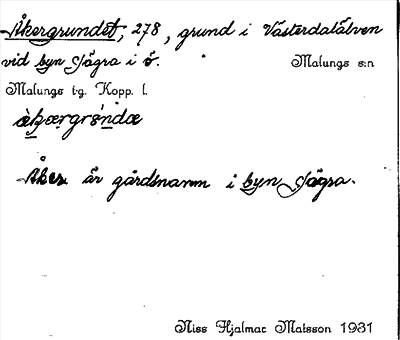 Åkergrundet, 278, grund i Västerdalälven
vid byn Sågra i ö. Malungs s:n
Malungs tg. Kopp. l.
Åker är gårdsnamn i byn Sågra.
Niss Hjalmar Matsson 1931